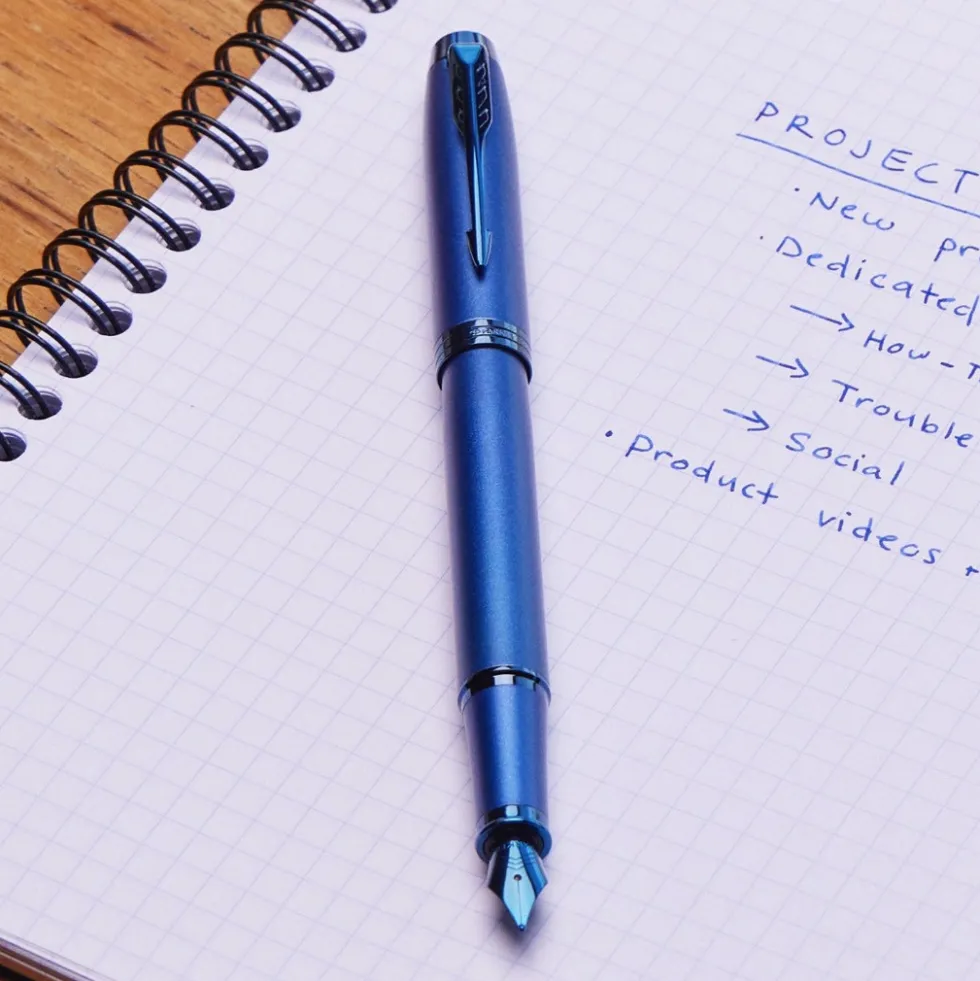 PROJECT
· New pr
· Dedicated
→ How-T
→ Trouble
→ Social
· Product videos +